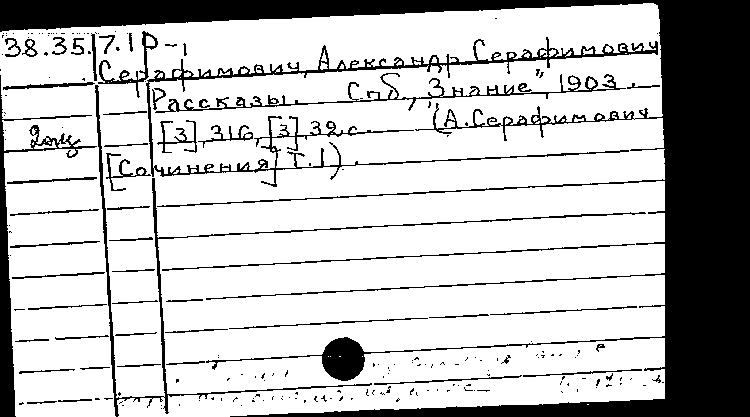 38.35.7.1 р-1
Серафимович, Александр Серафимович
Рассказы. Спб, "Знание", 1903.
2 экз [3], 316, [3], 32 с. (А. Серафимович
[Сочинения] Т.1).